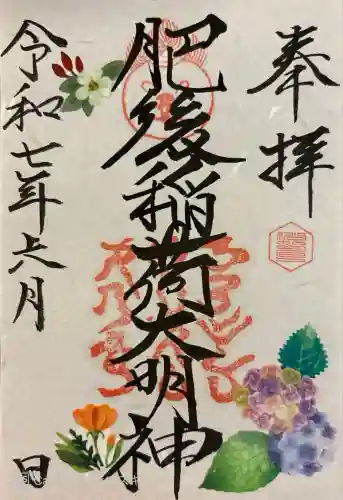 奉拝
肥後稲荷大明神
令和七年六月
日